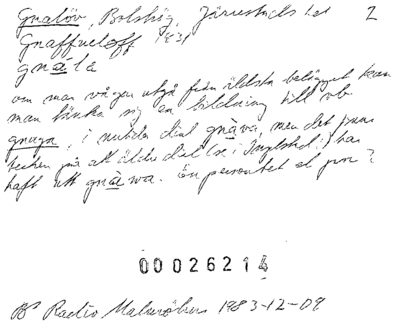 Gnalöv, Bolshög, Järrestads hd 2
Gnaffueloff 1631
gnála
om man vågar utgå från äldsta belägget kan
man tänka sig en bildning till vb
gnaga, i nutida dial gnàva, men det finns
tecken på att äldre dial (se i Ingelstad:) ha
haft ett gnàwa. En personbet el fno ?
00026214
Bo Radio Malmöhus 1983-12-09